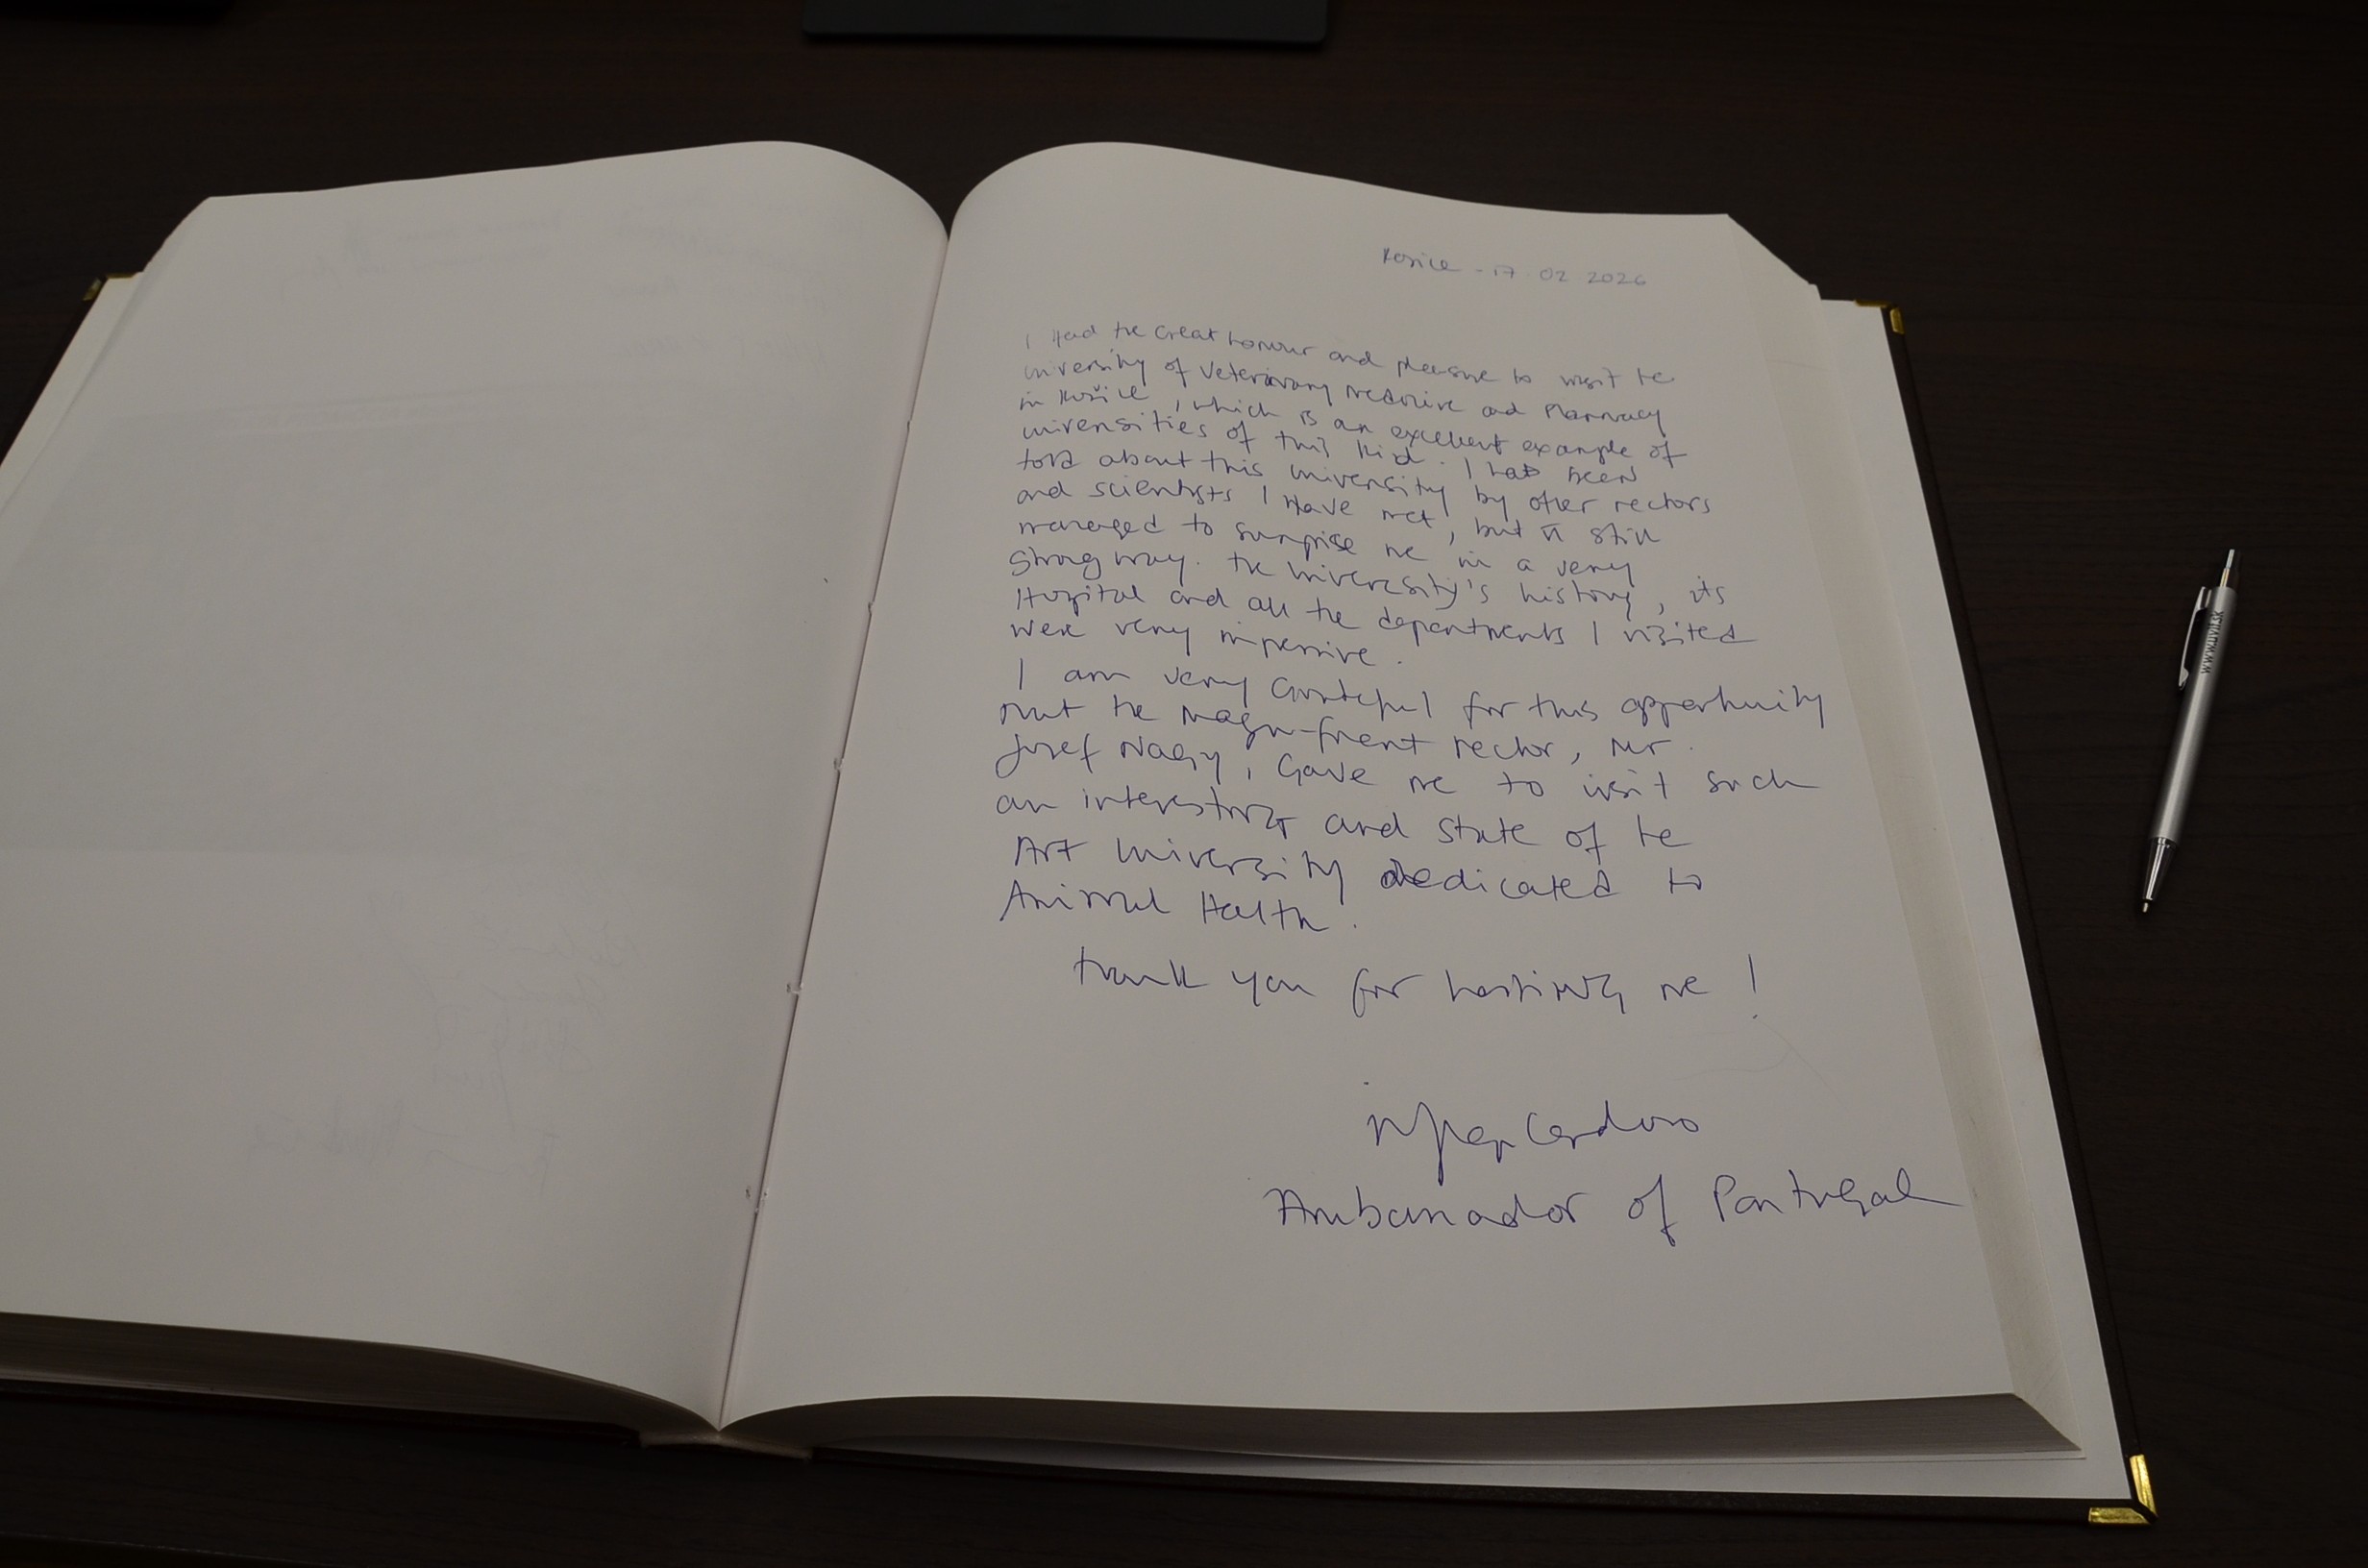 Košice - 17 02 2026
I Had the Great honour and pleasure to visit the
University of Veterinary Medicine and Pharmacy
in Košice, which is an excellent example of
universities of this kind. I had been
told about this university by other rectors
and scientists I Have met, but it still
managed to surprise me in a very
strong way. The University's history, its
Hospital and all the departments I visited
were very impressive.
I am very Grateful for this opportunity
that the Magnificent rector, Mr.
Jozef Nagy, Gave me to visit such
an interesting and state of the
Art University dedicated to
Animal Health.
Thank you for hosting me!
Cardoso
Ambassador of Portugal
www.uvlf.sk